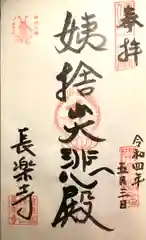 奉拝
令和四年
五月三日
姨捨大悲殿
長楽寺